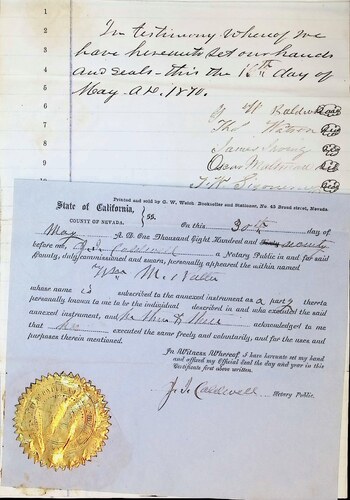 1
2
3
4
5
6
7
8
9
In testimony whereof we
have hereunto set our hands
and seals this the 16th day of
May A.D. 1870.
Baldwin
Watson
Printed and sold by G. W. Welch, Bookseller and Stationer, No. 43 Broad street, Nevada
State of California, } SS.
COUNTY OF NEVADA.
On this 30th day of
May A. D. One Thousand Eight Hundred and Seventy
before me, J. I. Caldwell a Notary Public in and for said
County, duly commissioned and sworn, personally appeared the within named
Wm M.
whose name is subscribed to the annexed instrument as a party thereto
personally known to me to be the individual described in and who executed the said
annexed instrument, and he acknowledged to me
that he executed the same freely and voluntarily, and for the uses and
purposes therein mentioned.
In Witness Whereof, I have hereunto set my hand
and affixed my Official Seal the day and year in this
Certificate first above written.
J. I. Caldwell
Notary Public.